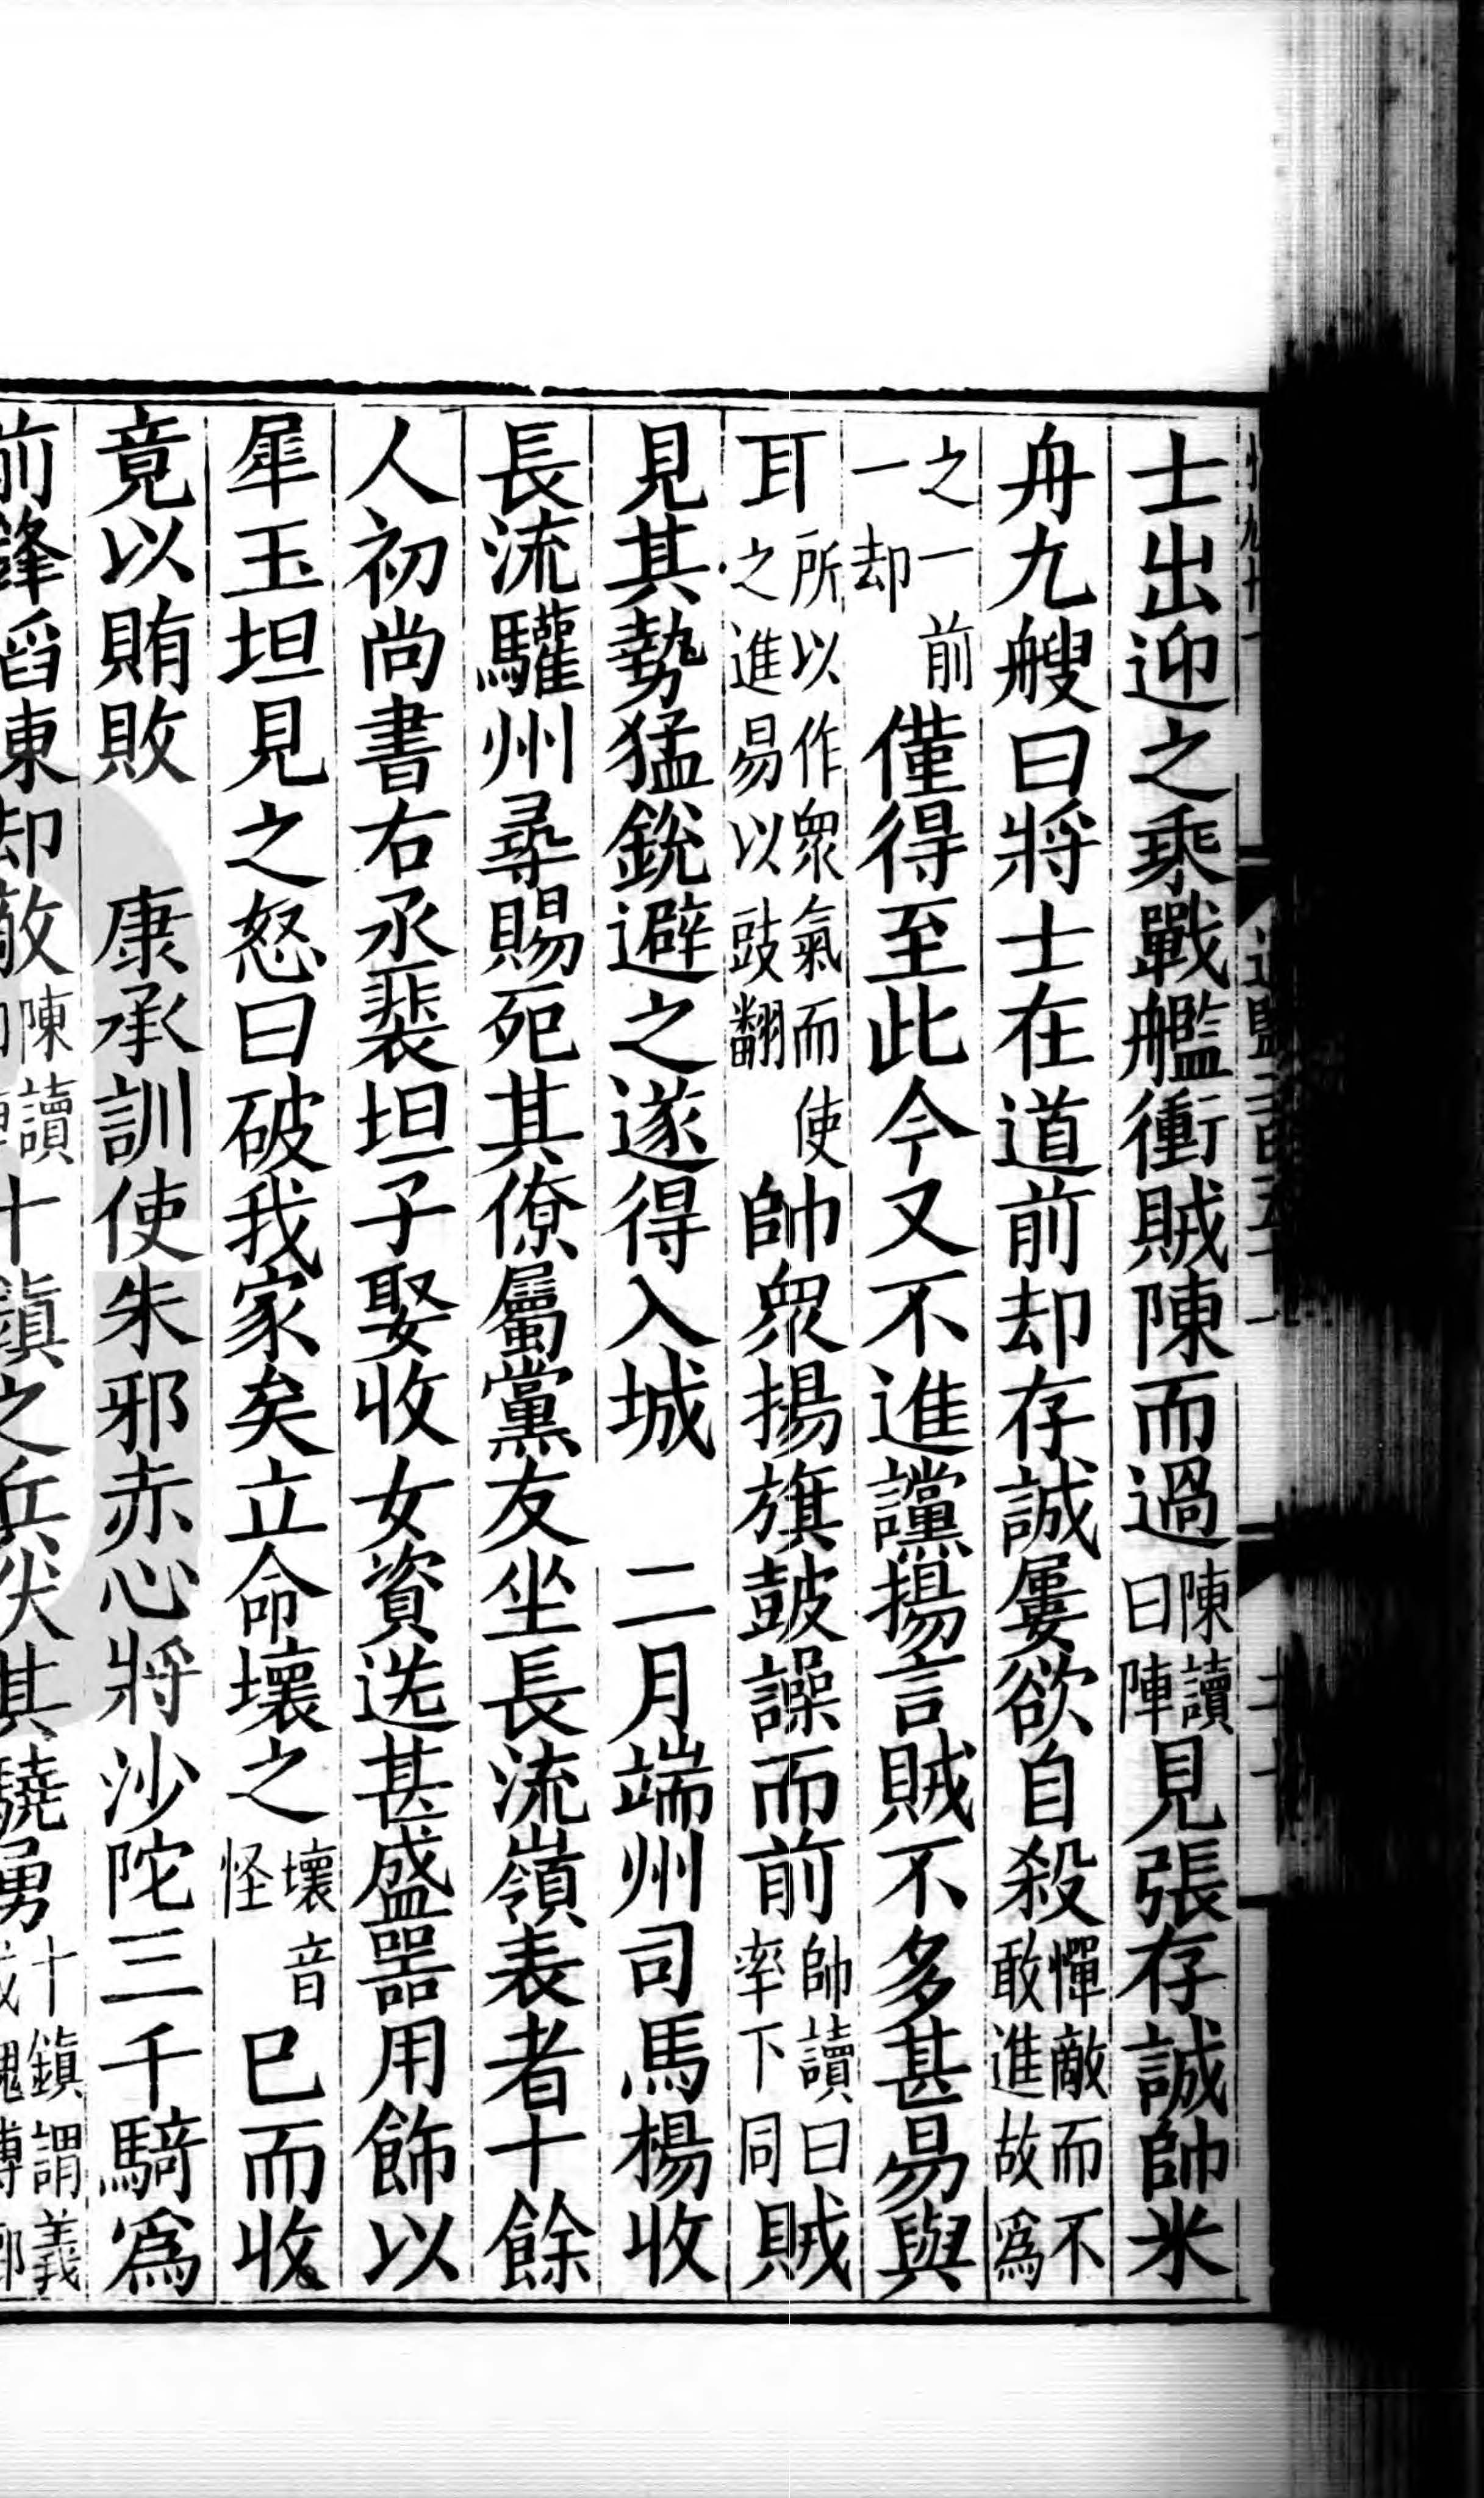 士出迎之乘戰艦衝賊陳而過陳讀曰陣見張存誠帥米
舟九艘曰將士在道前却存誠屢欲自殺憚敵而不敢進故爲
之一前一却僅得至此今又不進讜揚言賊不多甚易與
耳所以作衆氣而使之進易以豉翻帥衆揚旗鼓譟而前帥讀曰率下同賊
見其勢猛銳避之遂得入城　二月端州司馬楊收
長流驩州尋賜死其僚屬黨友坐長流嶺表者十餘
人初尚書右丞裴坦子娶收女資送甚盛器用飾以
犀玉坦見之怒曰破我家矣立命壞之壞音怪已而收
竟以賄敗　康承訓使朱邪赤心將沙陀三千騎爲
前鋒蹈東却敵陳讀十鎮之兵伏其驍勇十鎮謂義